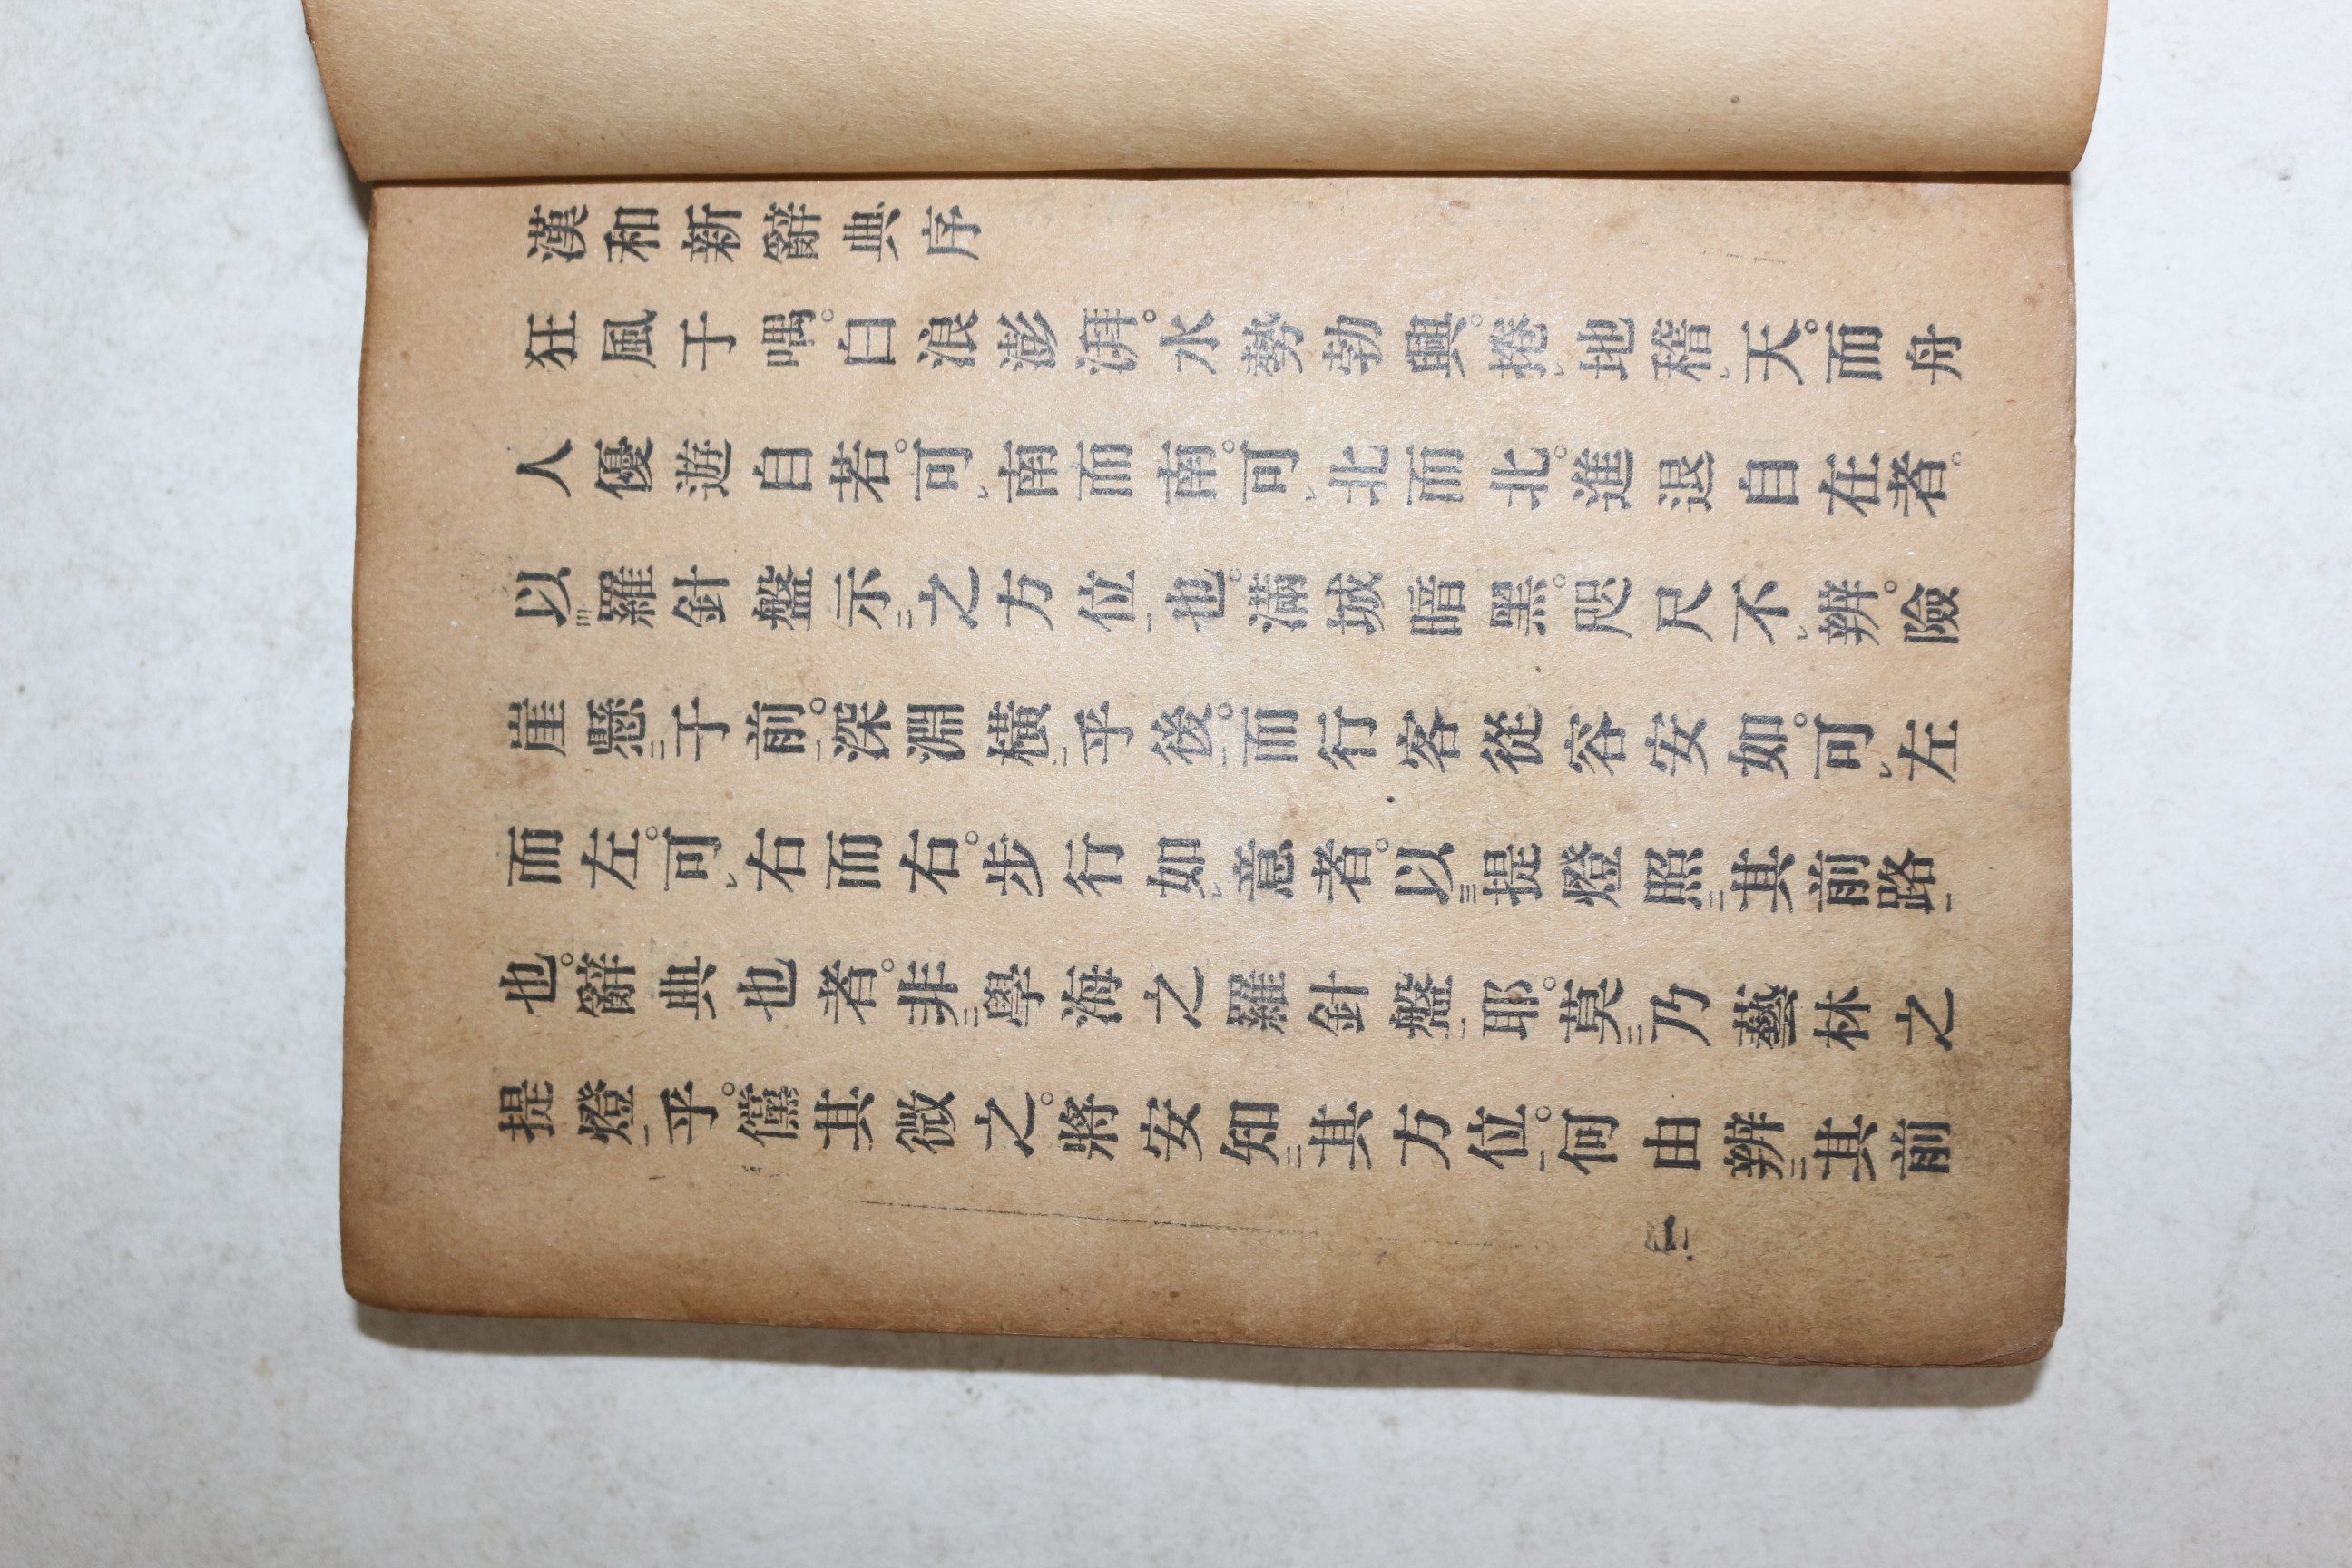 漢和新辭典序
狂風于喁。白浪澎湃。水勢勃興。捲㆑地稽㆑天。而舟
人優遊自若。可㆑南而南。可㆑北而北。進退自在者。
以㆔羅針盤示㆓之方位㆒也。滿城暗黑。咫尺不㆑辨。險
崖懸㆓于前㆒。深淵橫㆓乎後㆒。而行客從容安如。可㆑左
而左。可㆑右而右。步行如㆑意者。以㆔提燈照㆓其前路㆒
也。辭典也者。非㆓學海之羅針盤㆒耶。莫㆓乃藝林之
提燈㆒乎。儻其微之。將安知㆓其方位㆒。何由辨㆓其前